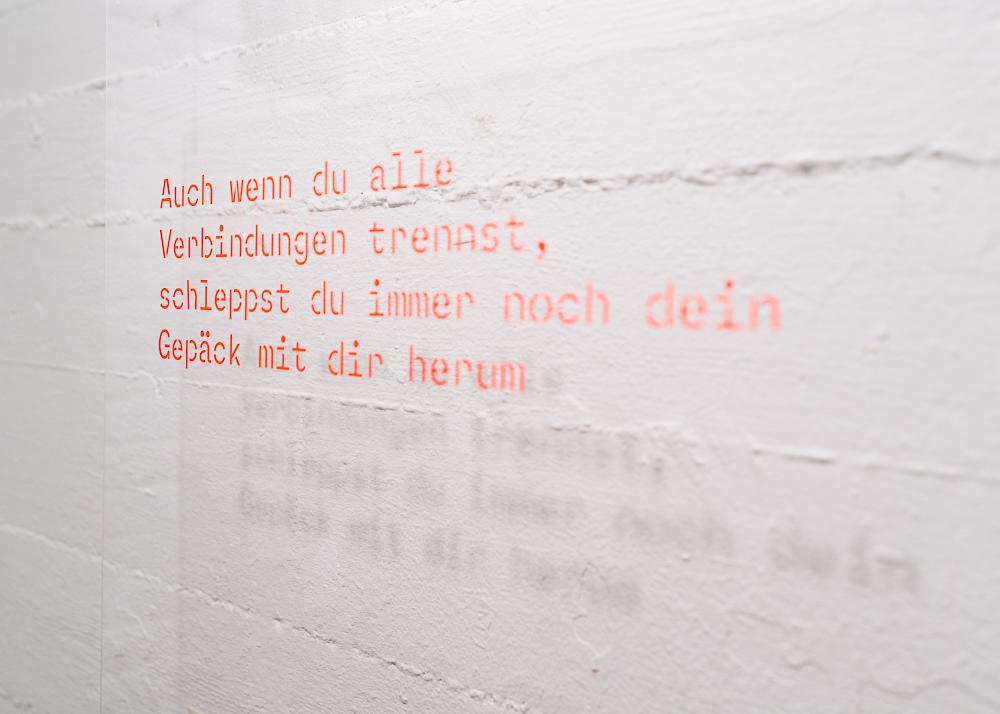 Auch wenn du alle
Verbindungen trennst,
schleppst du immer noch dein
Gepäck mit dir herum